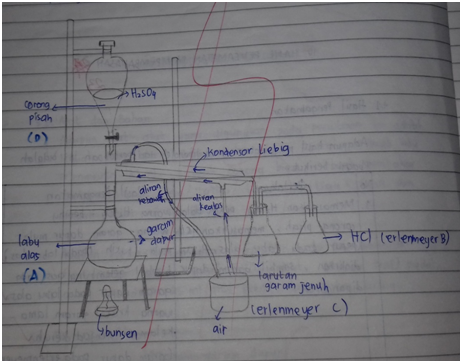 H₂SO₄
corong
pisah
(D)
Kondensor Liebig
aliran
aliran
keluar
labu
alas
(A)
garam
dapur
HCl (erlenmeyer B)
larutan
garam jenuh
(erlenmeyer C)
air
bunsen